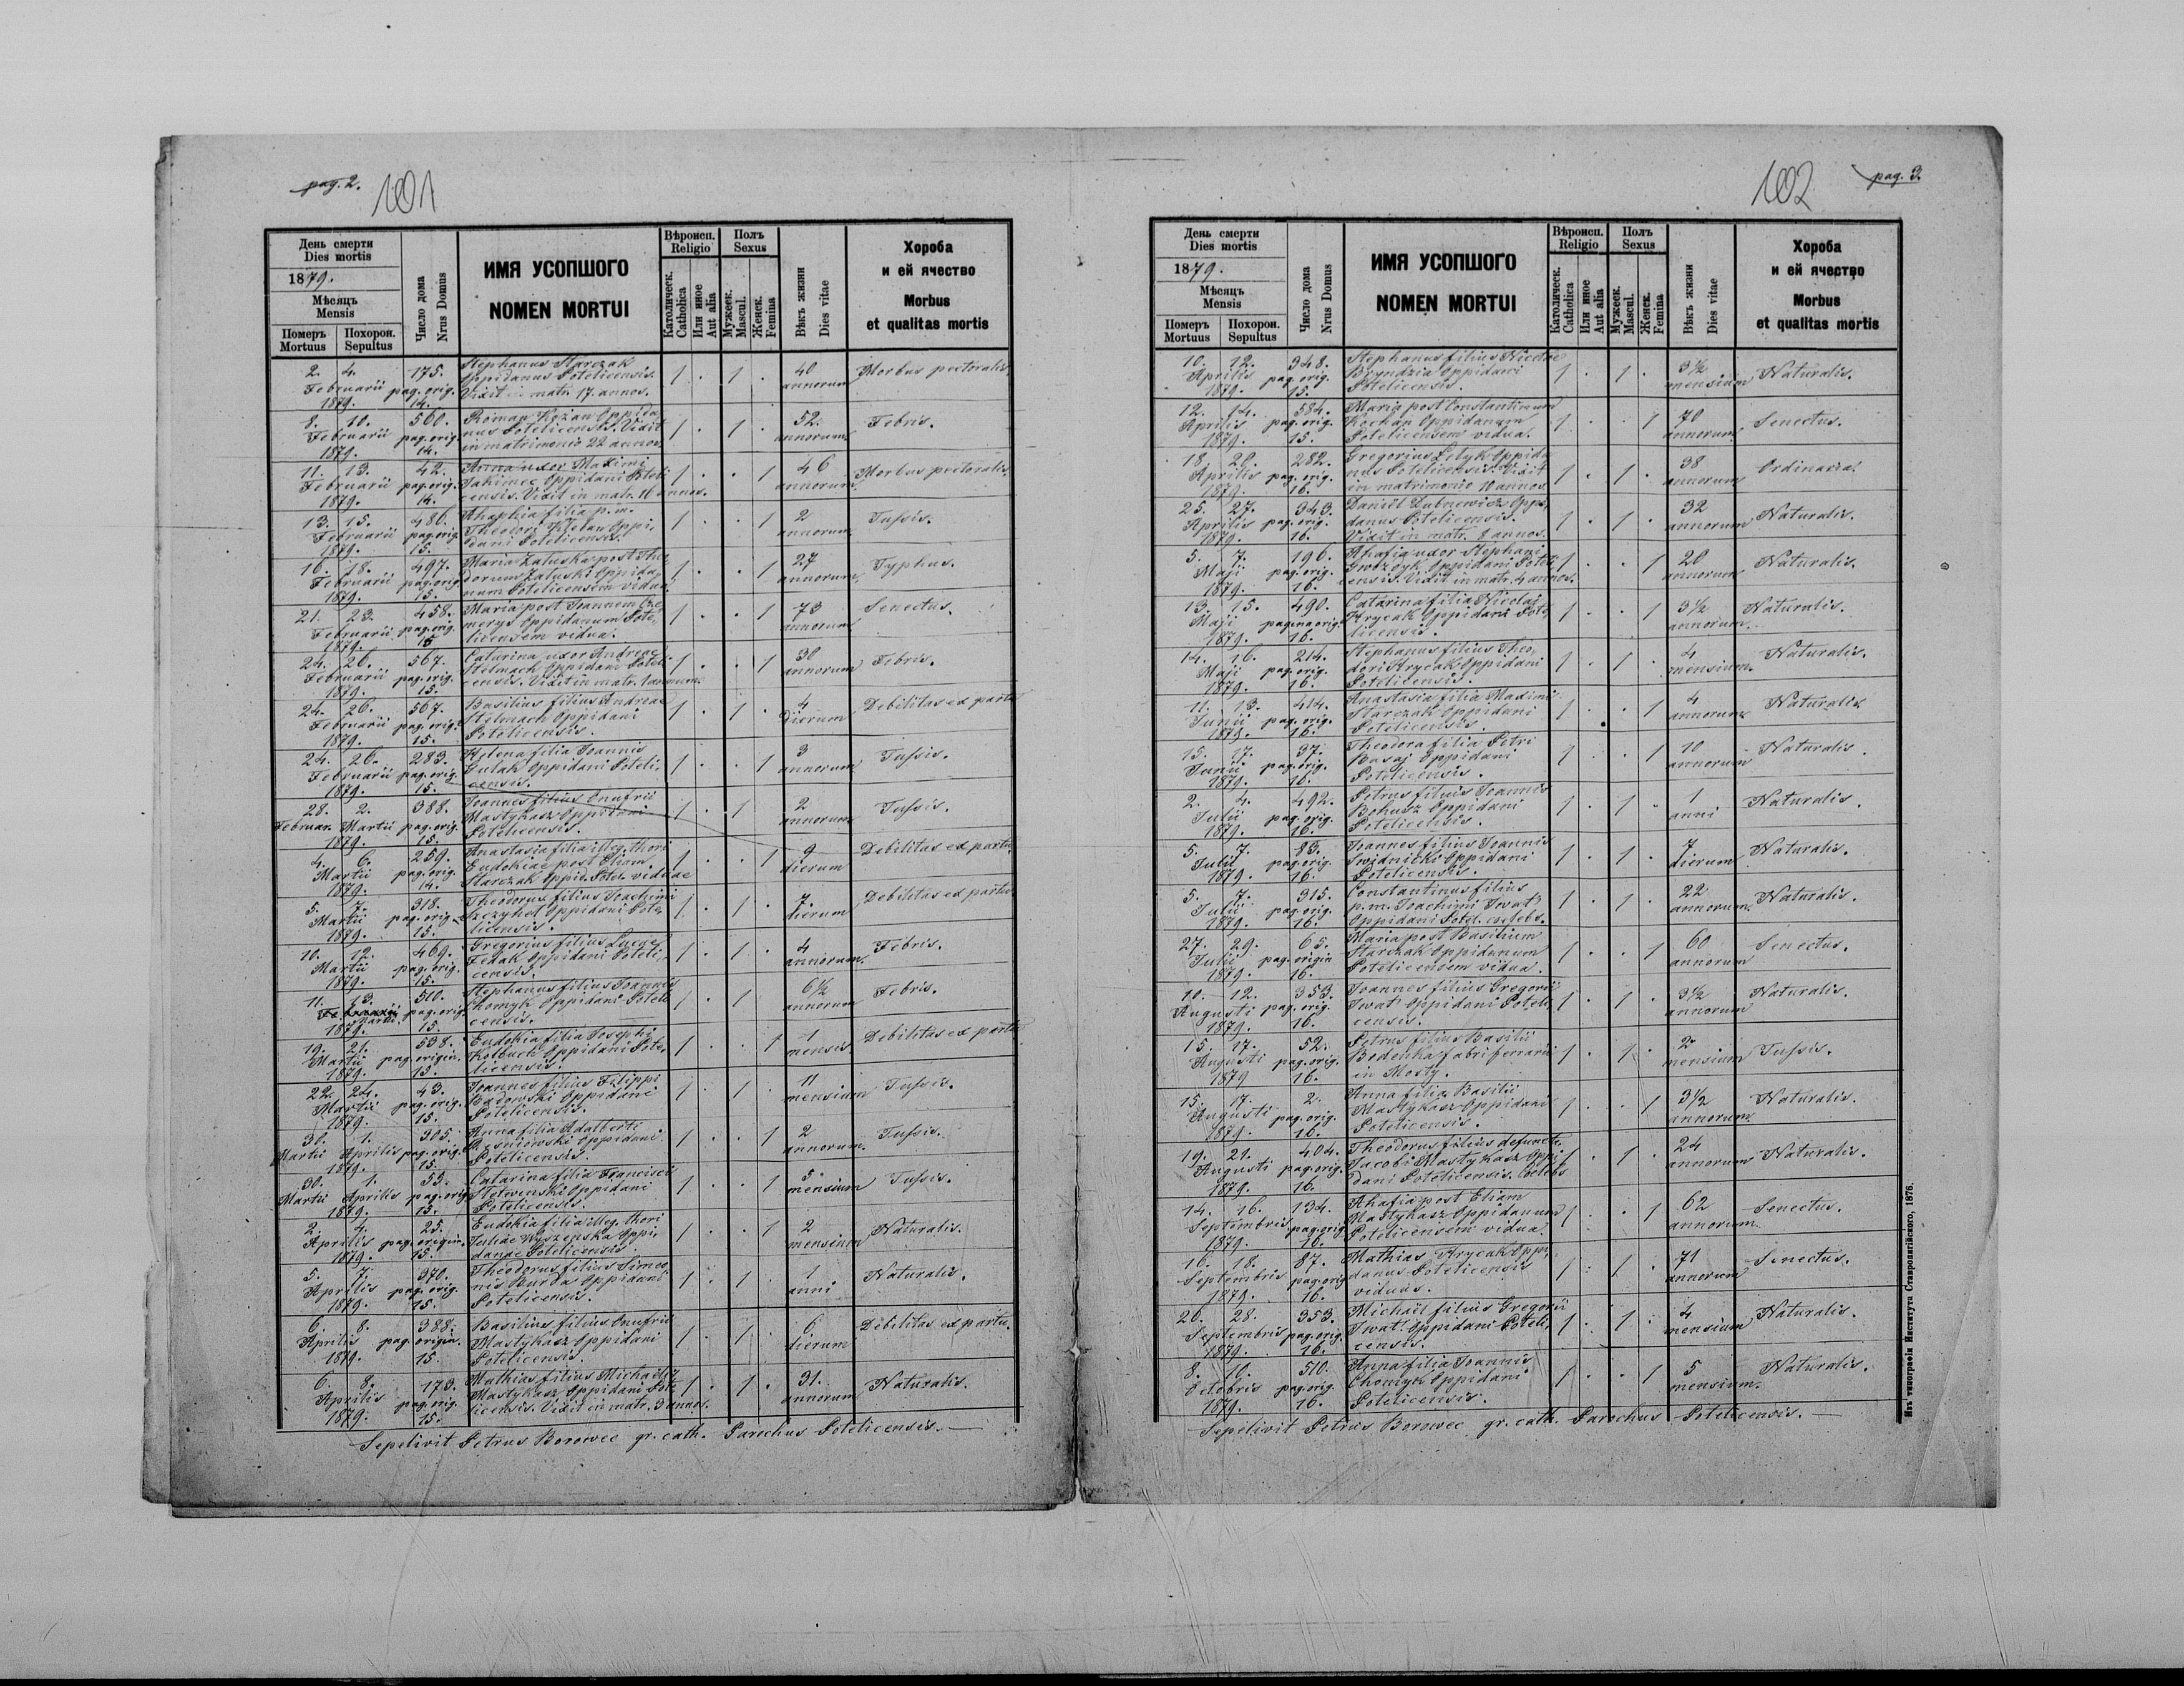 pag. 2.
101
День смерти
Dies mortis
1879.
Мѣсяцъ
Mensis
Померъ
Mortuus
Похорон.
Sepultus
Число дома
Nrus Domus
ИМЯ УСОПШОГО
NOMEN MORTUI
Вѣроисп.
Religio
Католическ.
Catholica
Или иное
Aut alia
Полъ
Sexus
Мужеск.
Mascul.
Женск.
Femina
Вѣкъ жизни
Dies vitae
Хороба
и ей ячество
Morbus
et qualitas mortis
2. 4. 175. Stephanus Starczak 1 . 1 . 40 Morbus pectoralis.
Februarii pag. orig. Oppidanus Potelicensis. annorum
1879. 14. Vixit in matr. 17. annos.
8. 10. 560. Roman Kozan Oppida 1 . 1 . 52. Febris.
Februarii pag. orig. nus Potelicensis. Vixit annorum
1879. 14. in matrimonio 22 annos
11. 13. 42. Anna uxor Maximi 1 . . 1 46 Morbus pectoralis.
Februarii pag. orig. Jahimec Oppidani Poteli annorum
1879. 14. censis. Vixit in matr. 16 annos.
13. 15. 486. filia p.m. 1 . . 1 2 Tussis.
Februarii pag. orig. Theodori Oppi, annorum
1879. 15. dani Potelicensis.
16. 18. 497. Maria Zaluska post Theo 1 . . 1 27 Typhus.
Februarii pag. orig. dorum Zaluski Oppida annorum
1879. 15. num Potelicensem vidua
21. 23. 458. Maria post Joannem 1 . . 1 73 Senectus.
Februarii pag. orig. merys Oppidanum Pote, annorum
1879. 15 licensem vidua.
24. 26. 567. Catarina uxor Andreae 1 . . 1 30 Febris.
Februarii pag. orig. Stelmach Oppidani Poteli annorum
1879. 15. censis. Vixit in matr. 1 annum
24. 26. 567. Basilius filius Andreae 1 . 1 . 4 Debilitas ex partu
Februarii pag. orig. Stelmach Oppidani dierum
1879. 15. Potelicensis.
24. 26. 283. Helena filia Joannis 1 . . 1 3 Tussis.
Februarii pag. orig. Gulak Oppidani Poteli, annorum
1879. 15. censis.
28. 2. 388. Joannes filius Onufrii 1 . 1 2 Tussis.
Februar. Martii pag. orig. Mastykasz Oppidani annorum
1879. 15. Potelicensis.
4. 6. 259. Anastasia filia illeg. thori 1 . . 1 9 Debilitas ex partu.
Martii pag. orig. Eudokiae post Eliam dierum
1879. 14. Starczak Oppid. Potel. viduae
5. 7. 318. Theodorus filius Joachimi 1 . 1 . 7. Debilitas ex partu
Martii pag. orig. Oppidani Pote, dierum
1879. 15. licensis.
10. 12. 469. Gregorius filius Lucae 1 . 1 . 4 Febris.
Martii pag. orig. Fedak Oppidani Poteli, annorum.
1879. 15. censis.
11. 13. 510. Stephanus filius Joannis 1 . 1 6½ Febris.
Martii pag. orig. Chomyk Oppidani Poteli annorum
1879. 15. censis.
19. 21. 538. Eudokia filia Josephi 1 . . 1 1 Debilitas ex partu
Martii pag. origin. Oppidani Pote, mensis
1879. 15. licensis.
22. 24. 43. Joannes filius Filippi 1 . 1 11 Tussis.
Martii pag. orig. Badowski Oppidani mensium
1879. 15. Potelicensis.
30. 1. 305. Anna filia Adalberti 1 . . 1 2 Tussis.
Martii Aprilis pag. orig. Oppidani annorum.
1879. 15. Potelicensis.
30. 1. 55. Catarina filia Francisci 1 . . 1 5 Tussis.
Martii Aprilis pag. orig. Oppidani mensium
1879. 15. Potelicensis.
2. 4. 25. Eudokia filia illeg. thori 1 . . 1 2 Naturalis.
Aprilis pag. origin. Juliae Oppi, mensium
1879. 15. danae Potelicensis.
5. 7. 370. Theodorus filius Simeo, 1 . 1 . 1 Naturalis.
Aprilis pag. orig. nis Burda Oppidani anni
1879. 15. Potelicensis.
6. 8. 388. Basilius filius Onufrii 1 . 1 . 6 Debilitas ex partu.
Aprilis pag. origin. Mastykasz Oppidani dierum
1879. 15. Potelicensis.
6. 8. 173. Mathias filius Michaelis 1 . 1 . 31. Naturalis.
Aprilis pag. orig. Mastykasz Oppidani Pote annorum
1879. 15. licensis. Vixit in matr. 3 annos.
Sepelivit Petrus Borowec gr. cath. Parochus Potelicensis.
102
pag. 3.
День смерти
Dies mortis
1879.
Мѣсяцъ
Mensis
Померъ
Mortuus
Похорон.
Sepultus
Число дома
Nrus Domus
ИМЯ УСОПШОГО
NOMEN MORTUI
Вѣроисп.
Religio
Католическ.
Catholica
Или иное
Aut alia
Полъ
Sexus
Мужеск.
Mascul.
Женск.
Femina
Вѣкъ жизни
Dies vitae
Хороба
и ей ячество
Morbus
et qualitas mortis
10. 12. 348. Stephanus filius Nicolai 1 . 1 . 3½ Naturalis.
Aprilis pag. orig. Bryndzia Oppidani mensium
1879. 15. Potelicensis.
12. 14. 584. Maria post Constantinum 1 . . 1 70 Senectus.
Aprilis pag. orig. Kochan Oppidanum annorum
1879. 15. Potelicensem vidua.
18. 20. 282. Gregorius Letyk Oppida 1 . 1 . 38 Ordinaria.
Aprilis pag. orig. nus Potelicensis. Vixit annorum
1879. 16. in matrimonio 10 annos
25. 27. 343. Daniel Zubnowicz Oppi, 1 . 1 . 32 Naturalis.
Aprilis pag. orig. danus Potelicensis. annorum
1879. 16. Vixit in matr. 8 annos.
5. 7. 196. Ahafia uxor Stephani 1 . . 1 20 Naturalis.
Maji pag. orig. Gwozdyk Oppidani Poteli annorum
1879. 16. censis. Vixit in matr. 4 annos.
13. 15. 490. Catarina filia Nicolai 1 . . 1 3½ Naturalis.
Maji pagina orig. Hrycak Oppidani Pote, annorum.
1879. 16. licensis.
14. 16. 214. Stephanus filius Theo, 1 . 1 . 4 Naturalis.
Maji pag. orig. dori Hrycak Oppidani mensium.
1879. 16. Potelicensis.
11. 13. 414. Anastasia filia Maximi 1 . . 1 4 Naturalis
Junii pag. orig. Starczak Oppidani annorum
1879. 16. Potelicensis.
15. 17. 37. Theodora filia Petri 1 . . 1 10 Naturalis.
Junii pag. orig. Basaj Oppidani annorum
1879. 16. Potelicensis.
2. 4. 492. Petrus filius Joannis 1 . 1 . 1 Naturalis.
Julii pag. orig. Bohusz Oppidani anni
1879. 16. Potelicensis.
5. 7. 83. Joannes filius Joannis 1 . 1 . 7 Naturalis.
Julii pag. orig. Swidnicki Oppidani dierum
1879. 16. Potelicensis.
5. 7. 315. Constantinus filius 1 . 1 . 22 Naturalis.
Julii pag. orig. p.m. Joachimi Iwat annorum.
1879. 16. Oppidani Potel. caelebs.
27. 29. 65. Maria post Basilium 1 . . 1 60 Senectus.
Julii pag. origin Starczak Oppidanum annorum
1879. 16. Potelicensem vidua.
10. 12. 353. Joannes filius Gregorii 1 . 1 . 3½ Naturalis.
Augusti pag. orig. Iwat Oppidani Poteli, annorum
1879. 16. censis.
15. 17. 52. Petrus filius Basilii 1 . 1 . 2 Tussis.
Augusti pag. orig. fabri ferrarii mensium
1879 16. in Mosty.
15. 17. 2. Anna filia Basilii 1 . . 1 3½ Naturalis.
Augusti pag. orig. Mastykasz Oppidani annorum
1879. 16. Potelicensis.
19. 21. 404. Theodorus filius defuncti 1 . 1 . 24 Naturalis.
Augusti pag. orig. Jacobi Mastykasz Oppi annorum
1879. 16. dani Potelicensis. Caelebs
14. 16. 134. Ahafia post Eliam 1 . . 1 62 Senectus.
Septembris pag. orig. Mastykasz Oppidanum annorum
1879. 16. Potelicensem vidua.
16. 18. 87. Mathias Hrycak Oppi 1 . 1 . 71 Senectus.
Septembris pag. orig danus Potelicensis annorum
1879. 16. viduus.
26. 28. 353. Michaël filius Gregorii 1 . 1 . 4 Naturalis.
Septembris pag. orig. Iwat Oppidani Poteli, mensium
1879. 16. censis.
8. 10. 510. Anna filia Joannis 1 . . 1 5 Naturalis.
Octobris pag. orig. Chomyk Oppidani mensium.
1879. 16. Potelicensis.
Sepelivit Petrus Borowec gr. cath. Parochus Potelicensis.
Изъ типографіи Института Ставропигійского, 1876.